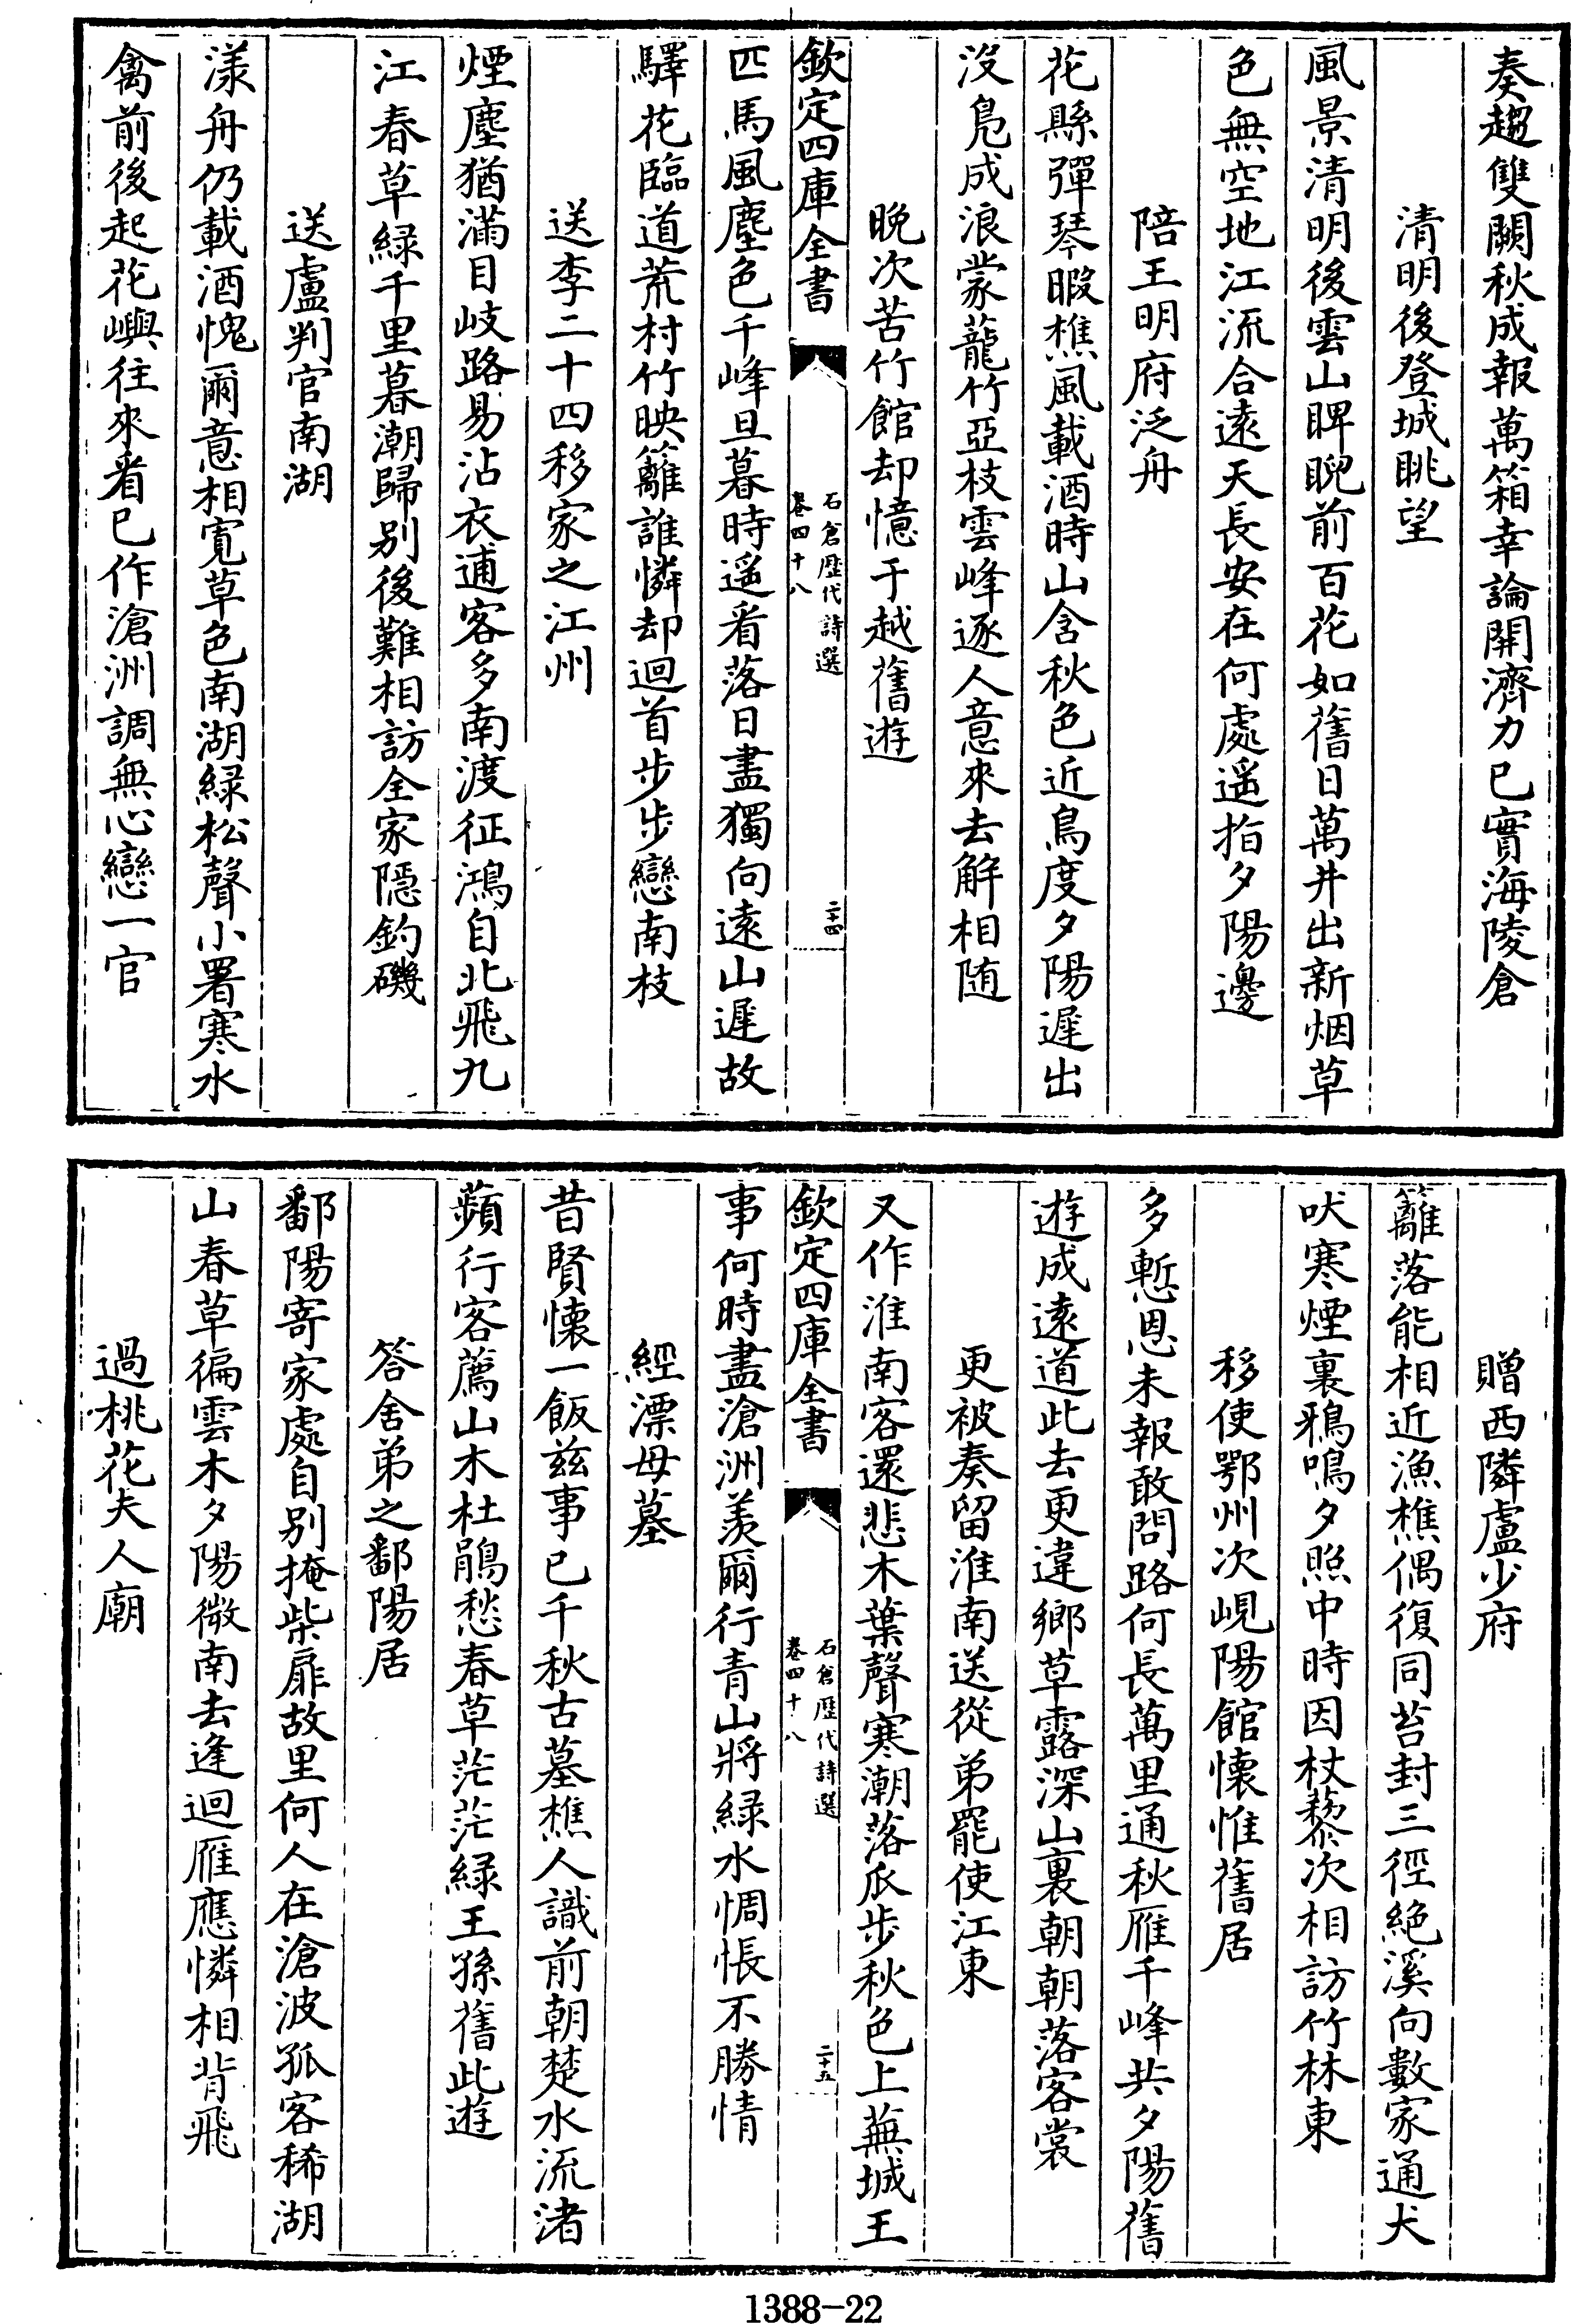 奏趨雙闕秋成報萬箱幸論開濟力已實海陵倉
清明後登城眺望
風景清明後雲山睥睨前百花如舊日萬井出新烟草
色無空地江流合遠天長安在何處遥指夕陽邊
陪王明府泛舟
花縣彈琴暇樵風載酒時山含秋色近鳥度夕陽遲出
没鳧成浪蒙蘢竹亞枝雲峰逐人意來去解相随
晚次苦竹館却憶于越舊遊
欽定四庫全書
石倉歷代詩選
卷四十八
二十四
匹馬風塵色千峰旦暮時遥看落日盡獨向遠山遲故
驛花臨道荒村竹映籬誰憐却迴首步步戀南枝
送李二十四移家之江州
煙塵猶滿目岐路易沾衣逋客多南渡征鴻自北飛九
江春草緑千里暮潮歸别後難相訪全家隱釣磯
送盧判官南湖
漾舟仍載酒愧爾意相寬草色南湖緑松聲小署寒水
禽前後起花嶼往來看已作滄洲調無心戀一官
贈西隣盧少府
籬落能相近漁樵偶復同苔封三徑絶溪向數家通犬
吠寒煙裏鴉鳴夕照中時因杖藜次相訪竹林東
移使鄂州次峴陽館懷惟舊居
多慙恩未報敢問路何長萬里通秋雁千峰共夕陽舊
遊成遠道此去更違鄉草露深山裏朝朝落客裳
更被奏留淮南送從弟罷使江東
又作淮南客還悲木葉聲寒潮落瓜步秋色上蕪城王
欽定四庫全書
石倉歷代詩選
卷四十八
二十五
事何時盡滄洲羨爾行青山將緑水惆悵不勝情
經漂母墓
昔賢懐一飯兹事已千秋古墓樵人識前朝楚水流渚
蘋行客薦山木杜鵑愁春草茫茫緑王孫舊此遊
答舍弟之鄱陽居
鄱陽寄家處自别掩柴扉故里何人在滄波孤客稀湖
山春草徧雲木夕陽微南去逢迴雁應憐相背飛
過桃花夫人廟
1388-22